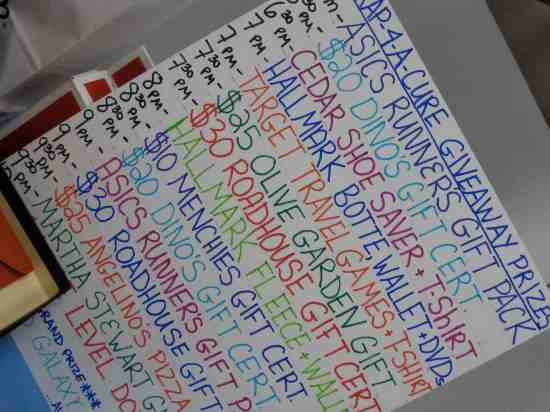 AP-4-A-CURE GIVEAWAY PRIZE
m - ASICS RUNNERS GIFT PACK
30 PM - $20 DINO'S GIFT CERT.
7 PM - CEDAR SHOE SAVER + T-SHIRT
7 PM - HALLMARK BOTTE, WALLET + DVDs
7 30 PM - TARGET TRAVEL GAMES + T-SHIRT
7 30 PM - $25 OLIVE GARDEN GIFT CERT
8 PM - $30 ROADHOUSE GIFT CERT
8 30 PM - HALLMARK FLEECE + WALL
8 30 PM - $10 MENCHIES GIFT CERT.
9 PM - $20 DINO'S GIFT CERT.
9 PM - ASICS RUNNER'S GIFT P
9 30 PM - $30 ROADHOUSE GIFT
9 30 PM - $25 ANGELINO'S PIZZA
PM - MARTHA STEWART G
LEVEL DO
GRAND PRIZE***
GALAXY